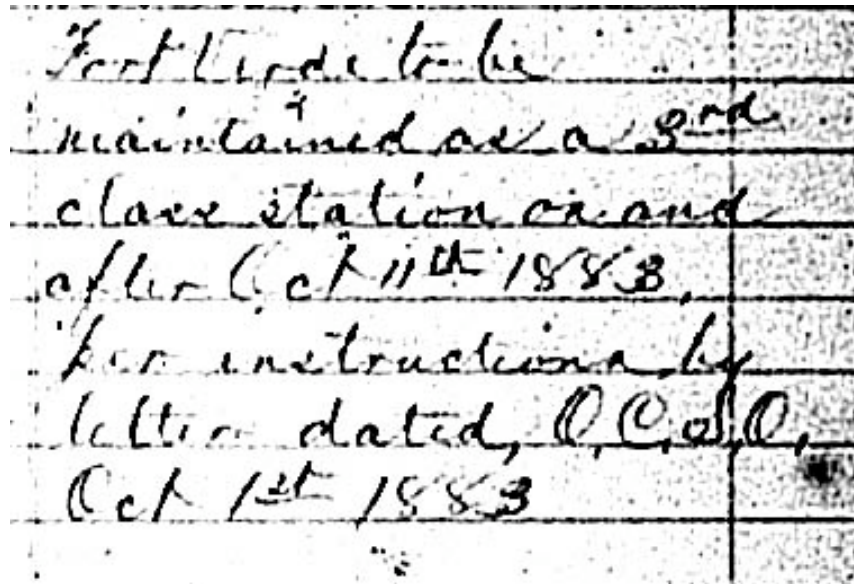 Fort Verde to be
maintained as a 3rd
class station on and
after Oct 11th 1883,
per instructions by
letter dated, O,C,S,O,
Oct 1st 1883